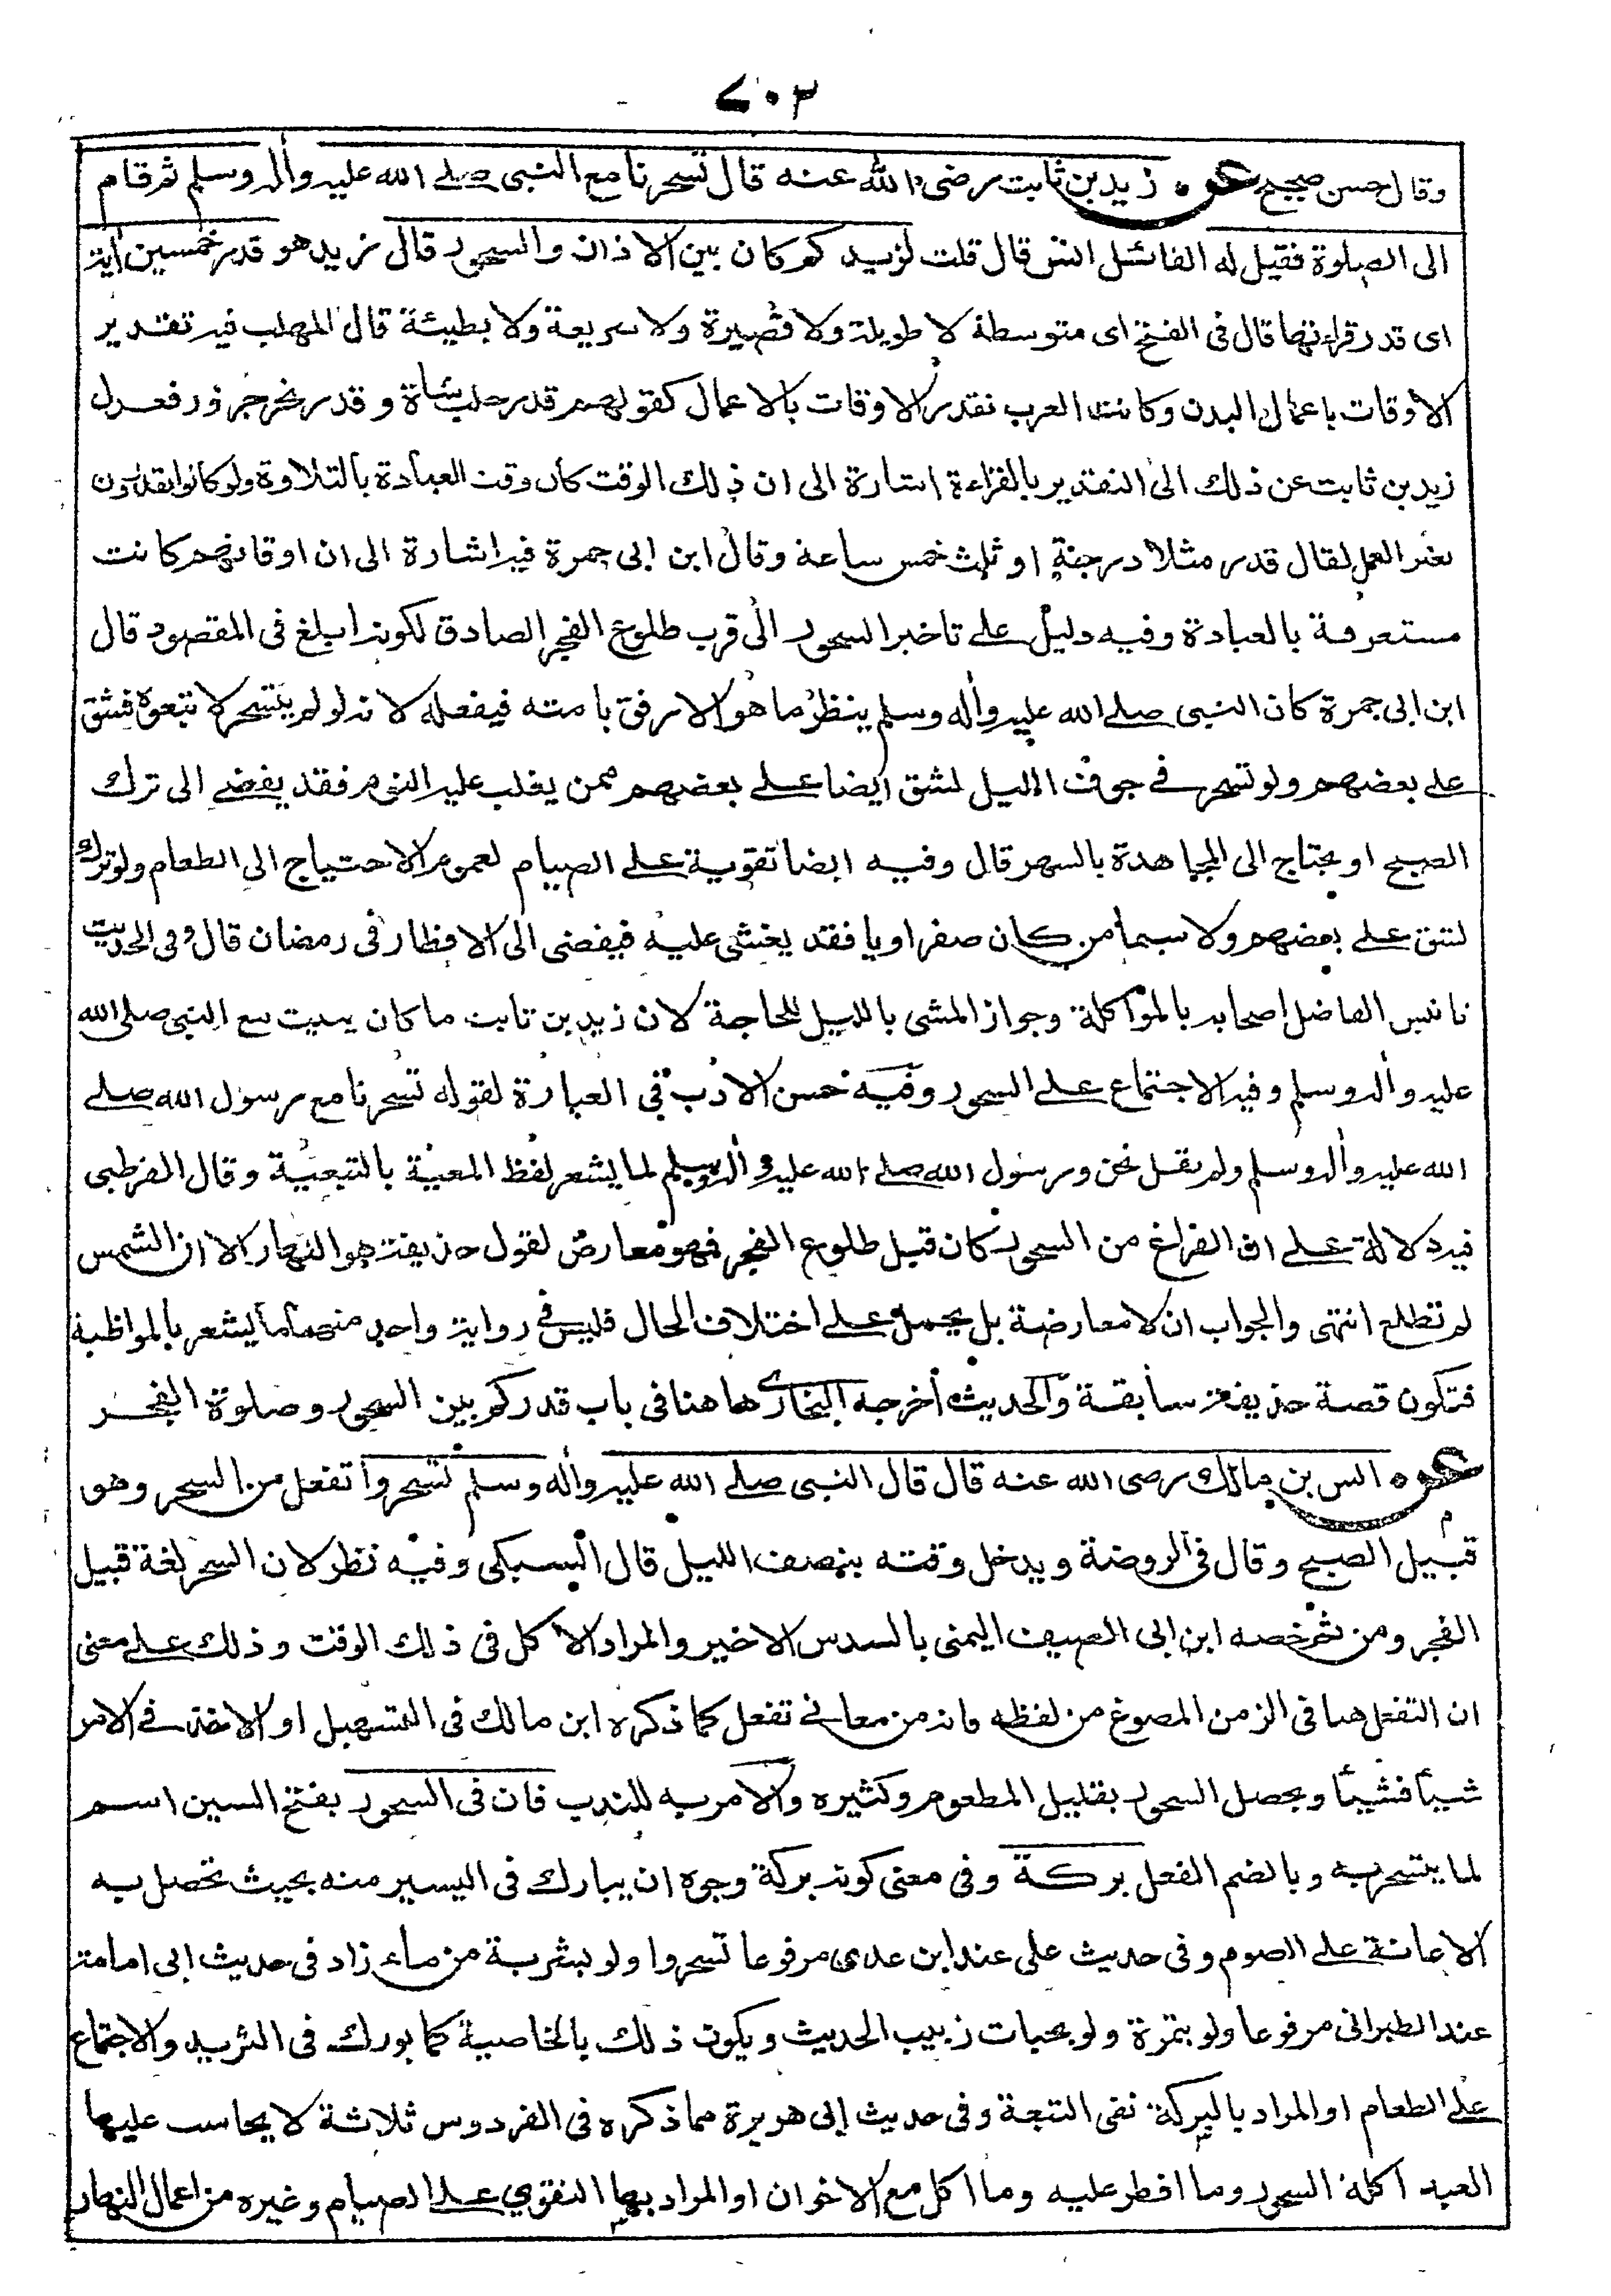 ٧٠٣
وقال حسن صحيح عن زيد بن ثابت رضى الله عنه قال تسحرنا مع النبى صلے الله عليه وأله وسلم ثم قام
الى الصلوة فقيل له القائل انس قال قلت لزيد كم كان بين الاذان والسحور قال زيد هو قدر خمسين أية
اى قدر قراءتها قال فى الفتح اى متوسطة لا طويلة ولا قصيرة ولا سريعة ولا بطيئة قال المهلب فيه تقدير
الاوقات باعمال البدن وكانت العرب تقدر الاوقات بالاعمال كقولهم قدر حلب شاة وقدر نحر جزور فعدل
زيد بن ثابت عن ذلك الى التقدير بالقراءة اشارة الى ان ذلك الوقت كان وقت العبادة بالتلاوة ولو كانوا يقدرون
بغير العمل لقال قدر مثلا درجة او ثلث خمس ساعة وقال ابن ابى جمرة فيه اشارة الى ان اوقاتهم كانت
مستعرفة بالعبادة وفيه دليل علے تاخير السحور الى قرب طلوع الفجر الصادق لكونه ابلغ فى المقصود قال
ابن ابى جمرة كان النبى صلے الله عليه وأله وسلم ينظر ما هو الارفق بامته فيفعله لانه لو لم يتسحر لاتبعوه فشق
علے بعضهم ولو تسحر فے جوف الليل لشق ايضا علے بعضهم ممن يغلب عليه النوم فقد يفضے الى ترك
الصبح او يحتاج الى المجاهدة بالسهر قال وفيه ايضا تقوية علے الصيام لعموم الاحتياج الى الطعام ولو ترك
لشق علے بعضهم ولا سيما من كان صفراويا فقد يغشى عليه فيفضى الى الافطار فى رمضان قال وفى الحديث
تانيس الفاضل اصحابه بالمواكلة وجواز المشى بالليل للحاجة لان زيد بن ثابت ما كان يبيت مع النبى صلى الله
عليه وأله وسلم وفيه الاجتماع علے السحور وفيه حسن الادب فى العبارة لقوله تسحرنا مع رسول الله صلے
الله عليه وأله وسلم ولم يقل نحن ورسول الله صلے الله عليه وأله وسلم لما يشعر لفظ المعية بالتبعية وقال القرطبى
فيه دلالة علے ان الفراغ من السحور كان قبل طلوع الفجر فهو معارض لقول حذيفة هو النهار الا ان الشمس
لم تطلع انتهى والجواب ان لا معارضة بل يحمل علے اختلاف الحال فليس فے رواية واحد منهما ما يشعر بالمواظبة
فتكون قصة حذيفة سابقة والحديث أخرجه البخارے هاهنا فى باب قدر كم بين السحور وصلوة الفجر
عن انس بن مالك رضى الله عنه قال قال النبى صلے الله عليه وأله وسلم تسحروا تفعل من السحر وهو
قبيل الصبح وقال فى الروضة ويدخل وقته بنصف الليل قال السبكى وفيه نظر لان السحر لغة قبيل
الفجر ومن ثم خصه ابن ابى الصيف اليمنى بالسدس الاخير والمراد الاكل فى ذلك الوقت وذلك علے معنى
ان التفعل هنا فى الزمن المصوغ من لفظه فانه من معانے تفعل كما ذكره ابن مالك فى التسهيل او الاخذ فے الامر
شيئا فشيئا ويحصل السحور بقليل المطعوم وكثيره والامر به للندب فان فى السحور بفتح السين اسم
لما يتسحر به وبالضم الفعل بركة وفى معنى كونه بركة وجوه ان يبارك فى اليسير منه بحيث تحصل به
الاعانة علے الصوم وفى حديث على عند ابن عدى مرفوعا تسحروا ولو بشربة من ماء زاد فى حديث ابى امامة
عند الطبرانى مرفوعا ولو بتمرة ولو بحبات زبيب الحديث ويكون ذلك بالخاصية كما بورك فى الثريد والاجتماع
علے الطعام او المراد بالبركة نفى التبعة وفى حديث ابى هريرة مما ذكره فى الفردوس ثلاثة لا يحاسب عليها
العبد اكلة السحور وما افطر عليه وما اكل مع الاخوان او المراد بها التقوي علے الصيام وغيره من اعمال النهار